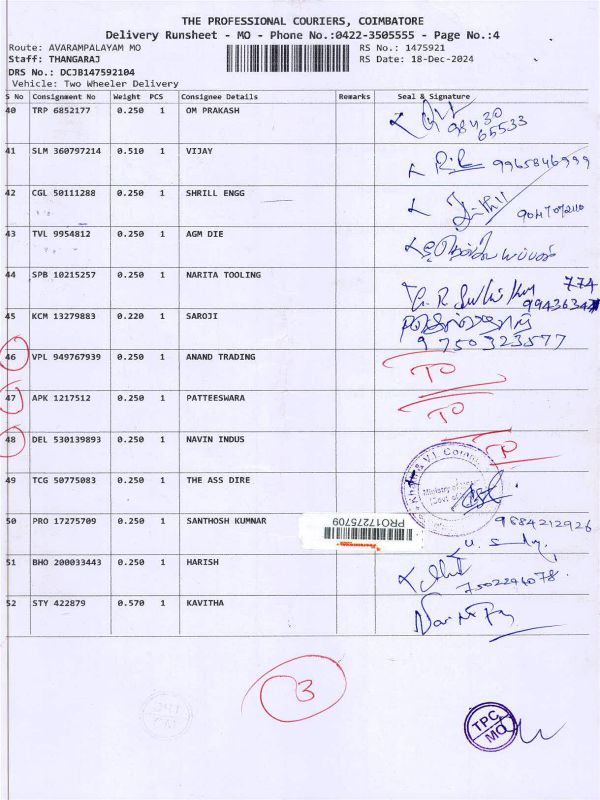 THE PROFESSIONAL COURIERS, COIMBATORE
Delivery Runsheet - MO - Phone No.:0422-3505555 - Page No.:4
Route: AVARAMPALAYAM MO RS No.: 1475921
Staff: THANGARAJ RS Date: 18-Dec-2024
DRS No.: DCJB147592104
Vehicle: Two Wheeler Delivery
S No Consignment No Weight PCS Consignee Details Remarks Seal & Signature
40 TRP 6852177 0.250 1 OM PRAKASH 98430
65533
41 SLM 360797214 0.510 1 VIJAY 9965846999
42 CGL 50111288 0.250 1 SHRILL ENGG
43 TVL 9954812 0.250 1 AGM DIE
44 SPB 10215257 0.250 1 NARITA TOOLING 774
45 KCM 13279883 0.220 1 SAROJI
9750323577
46 VPL 949767939 0.250 1 ANAND TRADING TO
47 APK 1217512 1 0.250 1 PATTEESWARA TO
48 DEL 530139893 0.250 1 NAVIN INDUS
49 TCG 50775083 0.250 1 THE ASS DIRE
50 PRO 17275709 0.250 1 SANTHOSH KUMNAR PRO17275709 9684212926
51 BHO 200033443 0.250 1 HARISH
7502294078
52 STY 422879 0.570 1 KAVITHA
3
TPC
MO